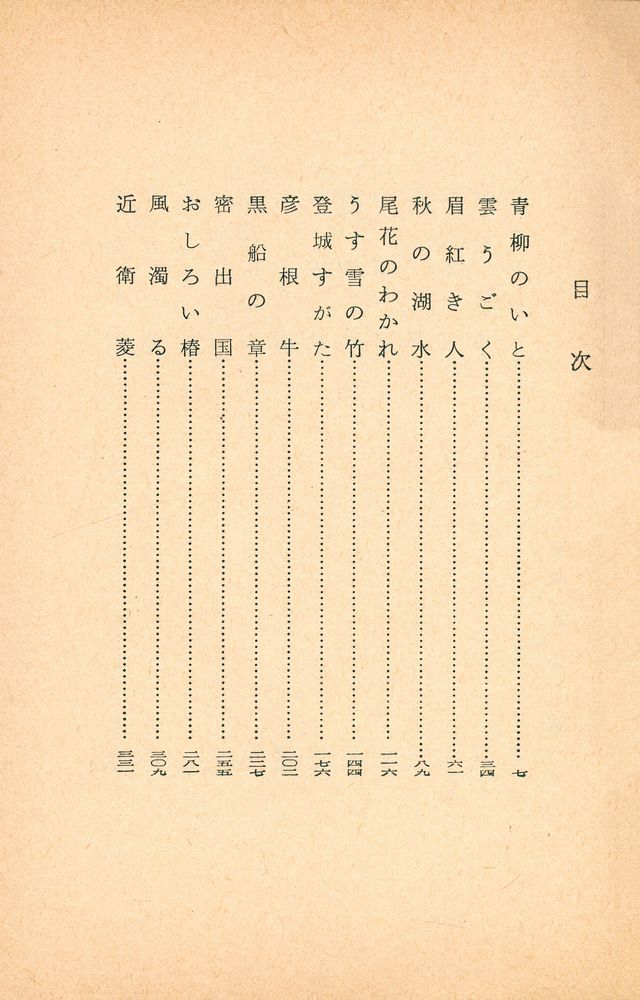 目次
青柳のいと……七
雲うごく……三四
眉紅き人……六一
秋の湖水……八九
尾花のわかれ……一一六
うす雪の竹……一四四
登城すがた……一七六
彦根牛……二〇二
黒船の章……二二七
密出国……二五五
おしろい椿……二八一
風濁る……三〇九
近衛菱……三三一